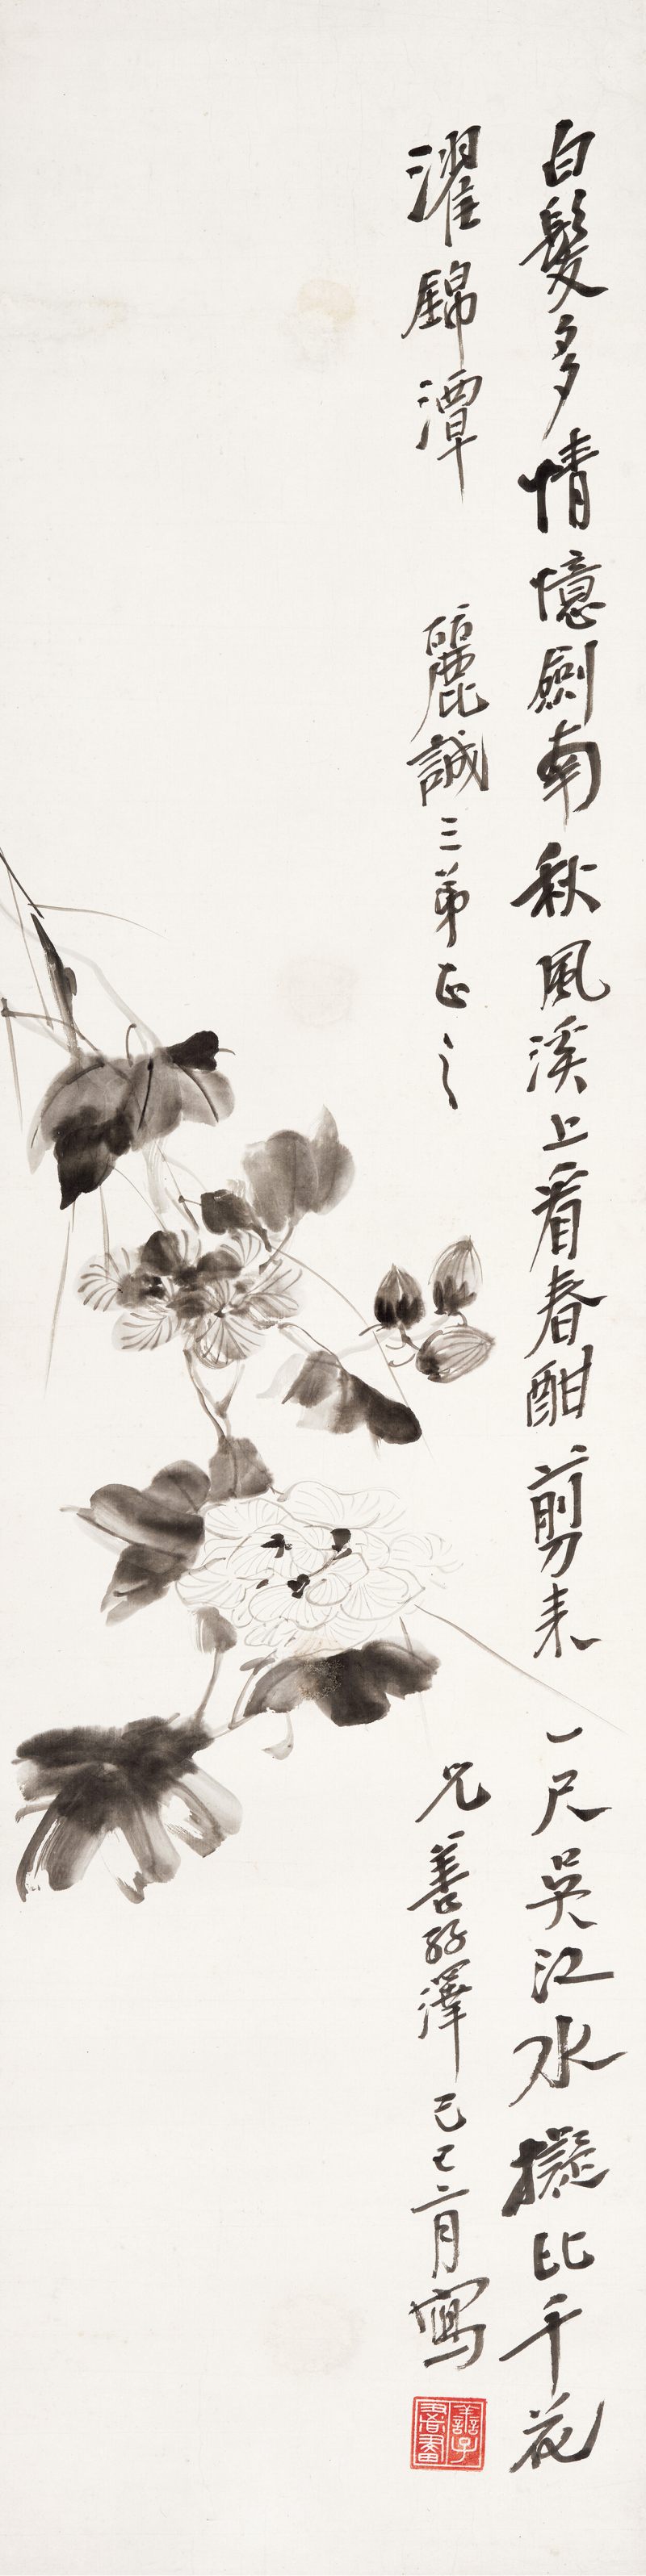 白髮多情憶劍南秋風溪上看春酣剪來一尺吳江水擬比千花
濯錦潭 麗誠三弟正之 兄善孖澤己巳二月寫
善子書畫